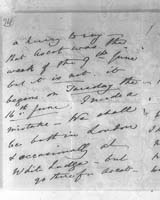 a hurry to say
that Ascot was the
week of the 9th June
but it is not. it
begins on Tuesday the
16th June. I made a
mistake – We shall
be both in London
& occasionally at
White Lodge – but
go there for Ascot.